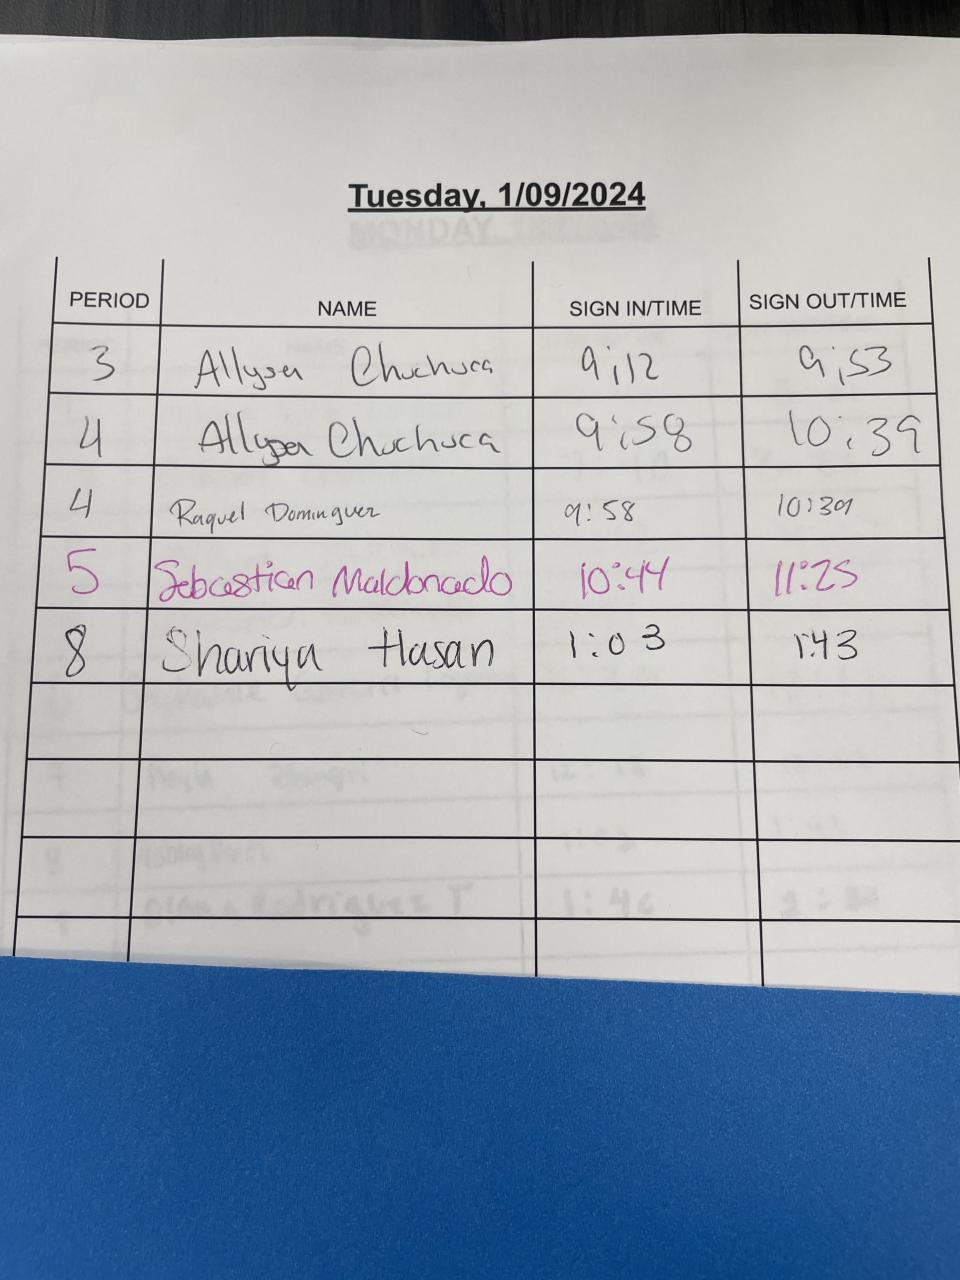 Tuesday, 1/09/2024
PERIOD NAME SIGN IN/TIME SIGN OUT/TIME
3 Allysa Chuchuca 9:12 9:53
4 Allysa Chuchuca 9:58 10:39
4 Raquel Dominguez 9:58 10:39
5 Sebastian Maldonado 10:44 11:25
8 Shariya Hasan 1:03 1:43